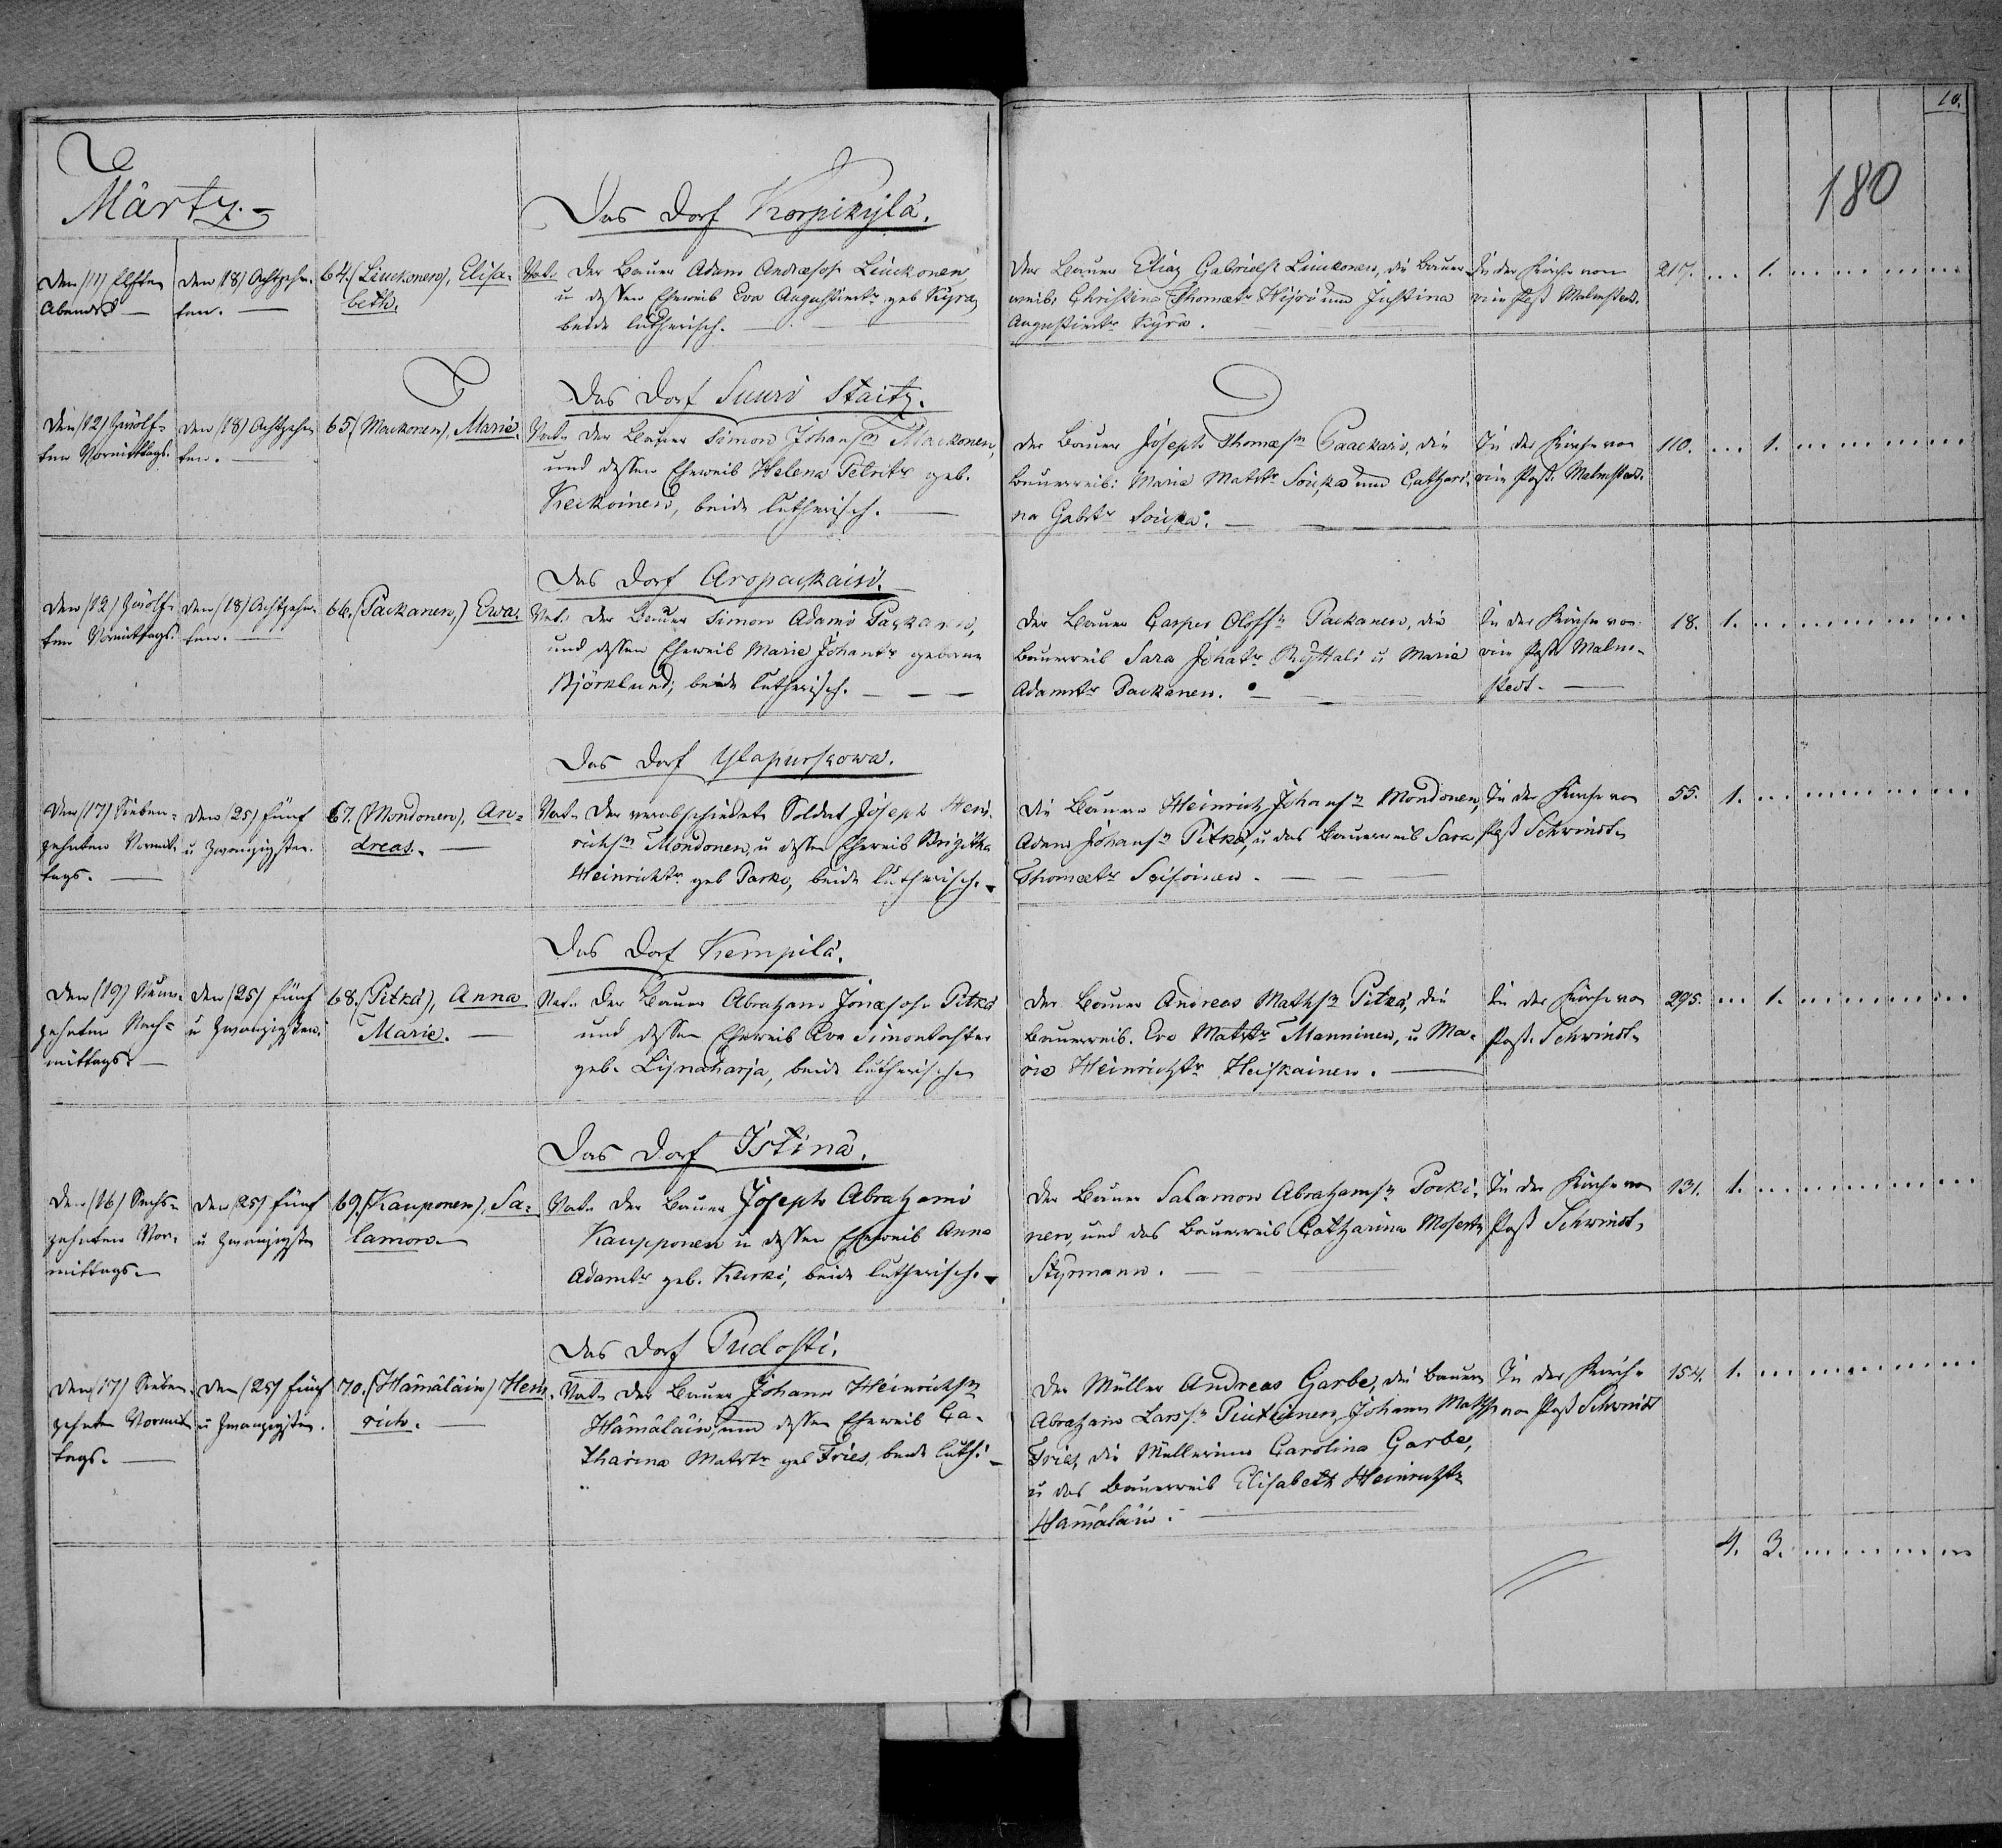 10.
180
Märtz.
Das Dorf Korpikylä.
Den (11) Elften
Abends
den (18) Achtzehn-
ten.
64. (Liuckonen), Elisa-
beth.
Vat. der Bauer Adam Andreasohn Liuckonen
u dessen Eheweib Eva Augustinrt. geb Kyrä,
beide lutherisch.
Der Bauer Elias Gabrielsn Liuckonen, die Bauer
weib: Christina Thomætr Hijri und Justina
Augustinrt Kyrä.
In der Kirche von
vice Past Malmstedt.
217. ... 1.
Das Dorf Suuri Staitz.
Den (12) Zwölf-
ten Vormittags.
den (18) Achtzehn
ten.
65 (Maukonen), Marie.
Vat. der Bauer Simon Johanssn Maukonen,
und dessen Eheweib Helena Petritr geb.
Keckoinen, beide lutherisch.
der Bauer Joseph Thomæsn Paackari, die
Bauerweib: Maria Matstr Souka und Cathari-
na Gabrtr Souka.
In der Kirche von
vice Past. Malmstedt.
110. ... 1.
Das Dorf Aropackaisi.
den (12) Zwölf-
ten Vormittags.
den (18) Achtzehn-
ten.
66. (Packanen,) Ewa.
Vat. der Bauer Simon Adami Packanen,
und dessen Eheweib Marie Johantr geborne
Björklund; beide lutherisch.
der Bauer Casper Olofsn Packanen, die
Bauerweib Sara Johatr Ryttäli u Maria
Adamtr Packanen.
In der Kirche von
vice Past Malm-
stedt.
18. 1.
Das Dorf Ylapurskowa.
den (17) Sieben-
zehnten Vormit-
tags.
den (25) fünf
u Zwanzigsten.
67. (Mondonen), An-
dreas.
Vat. der verabschiedete Soldat Joseph Hein-
richsn Mondonen, u dessen Eheweib Brigitha
Heinrichtr. geb Parko, beide lutherisch.
die Bauern Heinrich Johansn Mondonen,
Adam Johansn Pitkä, u das Bauerweib Sara
Thomætr Soisoinen.
In der Kirche von
Past Schwindt.
55. 1.
Das Dorf Kempilä.
den (19) Neun-
zehnten Nach-
mittags.
den (25) fünf
u Zwanzigsten.
68. (Pitkä), Anna
Marie.
Vat. der Bauer Abraham Jonæsohn Pitkä
und dessen Eheweib Eva Simontochter
geb. Lijnaharja, beide lutherisch
der Bauer Andreas Mathsn Pitkä, die
Bauerweib. Eva Matstr Manninen, u Ma-
ria Heinrichtr Heiskainen.
In der Kirche von
Past. Schwindt.
295. ... 1.
Das Dorf Istinä.
den (16) Sechs-
zehnten Vor-
mittags.
den (25) fünf
u Zwanzigsten
69. (Kaupponen), Sa-
lamon.
Vat. der Bauer Joseph Abrahami
Kaupponen u dessen Eheweib Anna
Adamtr geb. Kurki, beide lutherisch.
der Bauer Salamon Abrahamsn Pocki-
nen, und das Bauerweib Catharina Mosestr
Styrmann.
In der Kirche von
Past Schwindt.
131. 1.
Das Dorf Pudosti.
den (17) Sieben-
zehnten Vormit-
tags.
den (25) fünf
u Zwanzigsten.
70. (Hämäläin) Hein-
rich.
Vat. der Bauer Johann Heinrichsn
Hämäläin, und dessen Eheweib Ca-
tharina Matstr geb Fries, beide luth:
der Müller Andreas Garbe, die Bauern
Abraham Larssn Piutunen, Johann Mathsn
Fries, die Müllerinn Carolina Garbe,
u das Bauerweib Elisabeth Heinrichtr
Hämäläin.
In der Kirche
von Past Schwindt
154. 1.
4. 3.